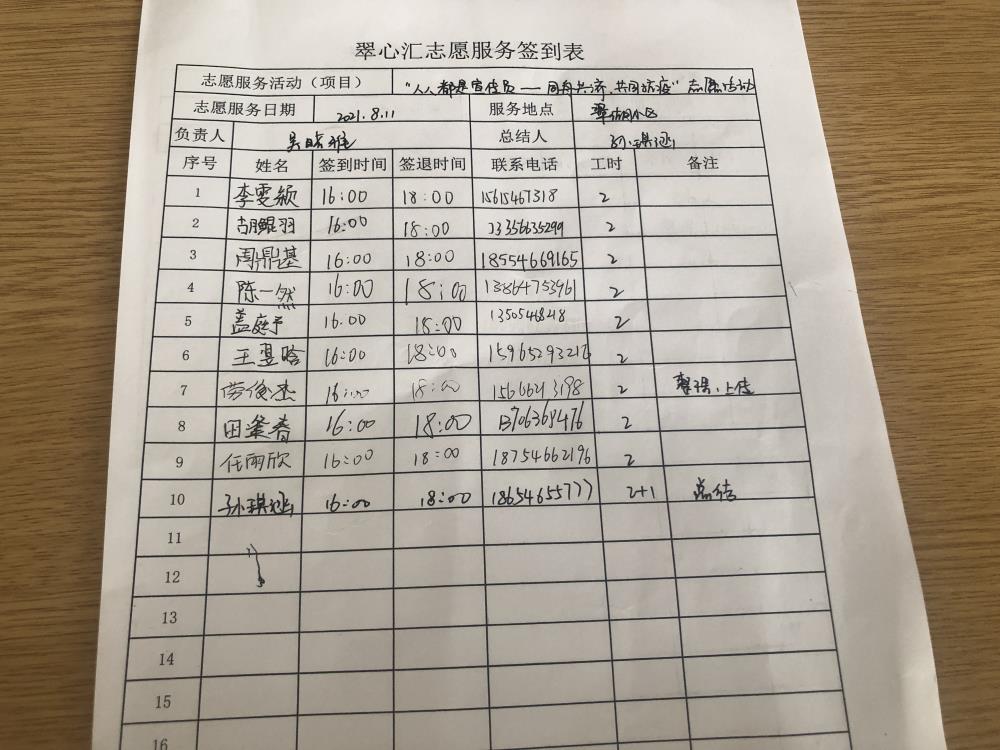 翠心汇志愿服务签到表
志愿服务活动（项目） "人人都是宣传员——同舟共济,共同防疫"志愿活动
志愿服务日期 2021.8.11 服务地点
负责人 总结人 孙琪涵
序号 姓名 签到时间 签退时间 联系电话 工时 备注
1 李雯颖 16:00 18:00 15615467318 2
2 胡鲲羽 16:00 18:00 13356635299 2
3 周鼎基 16:00 18:00 18554669165 2
4 陈一然 16:00 18:00 13864753961 2
5 盖庭予 16:00 18:00 2
6 王昱晗 16:00 18:00 15965293216 2
7 劳俊杰 16:00 18:00 15666213198 2 整理·上传
8 田肇春 16:00 18:00 13706368476 2
9 任雨欣 16:00 18:00 18754662196 2
10 孙琪涵 16:00 18:00 18654655777 2+1 总结
11
12
13
14
15
16